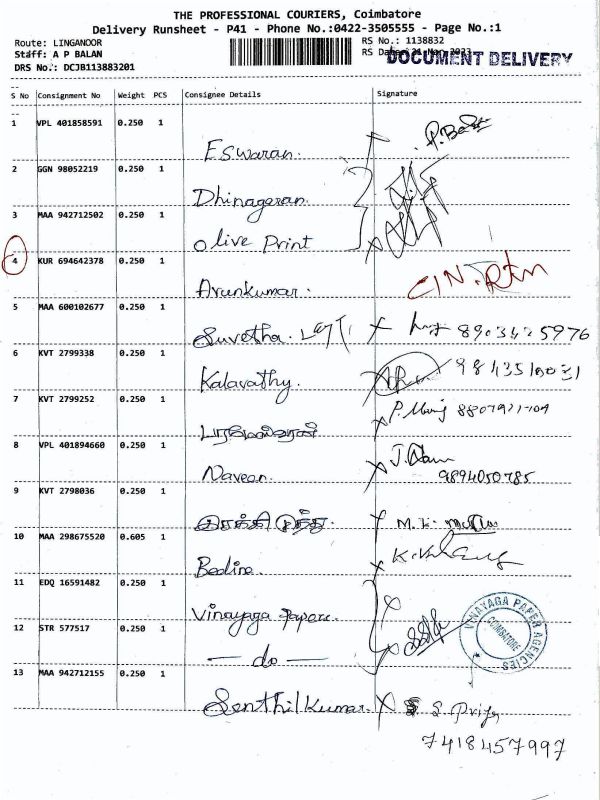 THE PROFESSIONAL COURIERS, Coimbatore
Delivery Runsheet - P41 - Phone No.:0422-3505555 - Page No.:1
Route: LINGANOOR
RS No.: 1138832
Staff: A P BALAN
RS Date: 31 2023
DOCUMENT DELIVERY
DRS No.: DCJB113883201
S No Consignment No Weight PCS Consignee Details Signature
1 VPL 401858591 0.250 1
Eswaran.
2 GGN 98052219 0.250 1
Dhinagaran.
3 MAA 942712502 0.250 1
Olive Print
4 KUR 694642378 0.250 1
Arunkumar.
5 MAA 600102677 0.250 1
Suvetha.
6 KVT 2799338 0.250 1
Kalavathy.
7 KVT 2799252 0.250 1
8 VPL 401894660 0.250 1
Naveen.
9894050785
9 KVT 2798036 0.250 1
10 MAA 298675520 0.605 1
11 EDQ 16591482 0.250 1
Vinayaga Papers.
12 STR 577517 0.250 1
— do —
VINAYAGA PAPER AGENCIES
COIMBATORE
13 MAA 942712155 0.250 1
Senthil Kumar. S Priya
7418457997